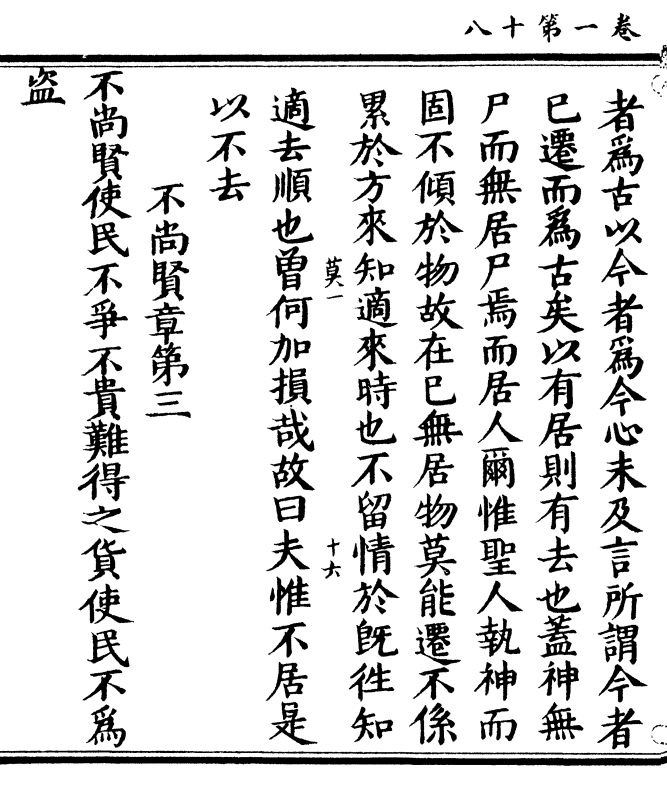 卷一第十八
者爲古以今者爲今心未及言所謂今者
已遷而爲古矣以有居則有去也蓋神無
尸而無居尸焉而居人爾惟聖人執神而
固不傾於物故在已無居物莫能遷不係
累於方來知適來時也不留情於旣徃知
莫一
十六
適去順也曾何加損哉故曰夫惟不居是
以不去
不尚賢章第三
不尚賢使民不爭不貴難得之貨使民不爲
盗